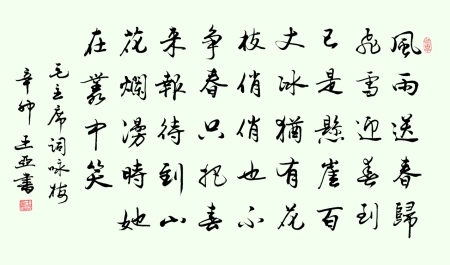 風雨送春歸
飛雪迎春到
已是懸崖百
丈冰猶有花
枝俏俏也不
争春只把春
来報待到山
花爛漫時她
在叢中笑
毛主席词咏梅
辛卯王亚書